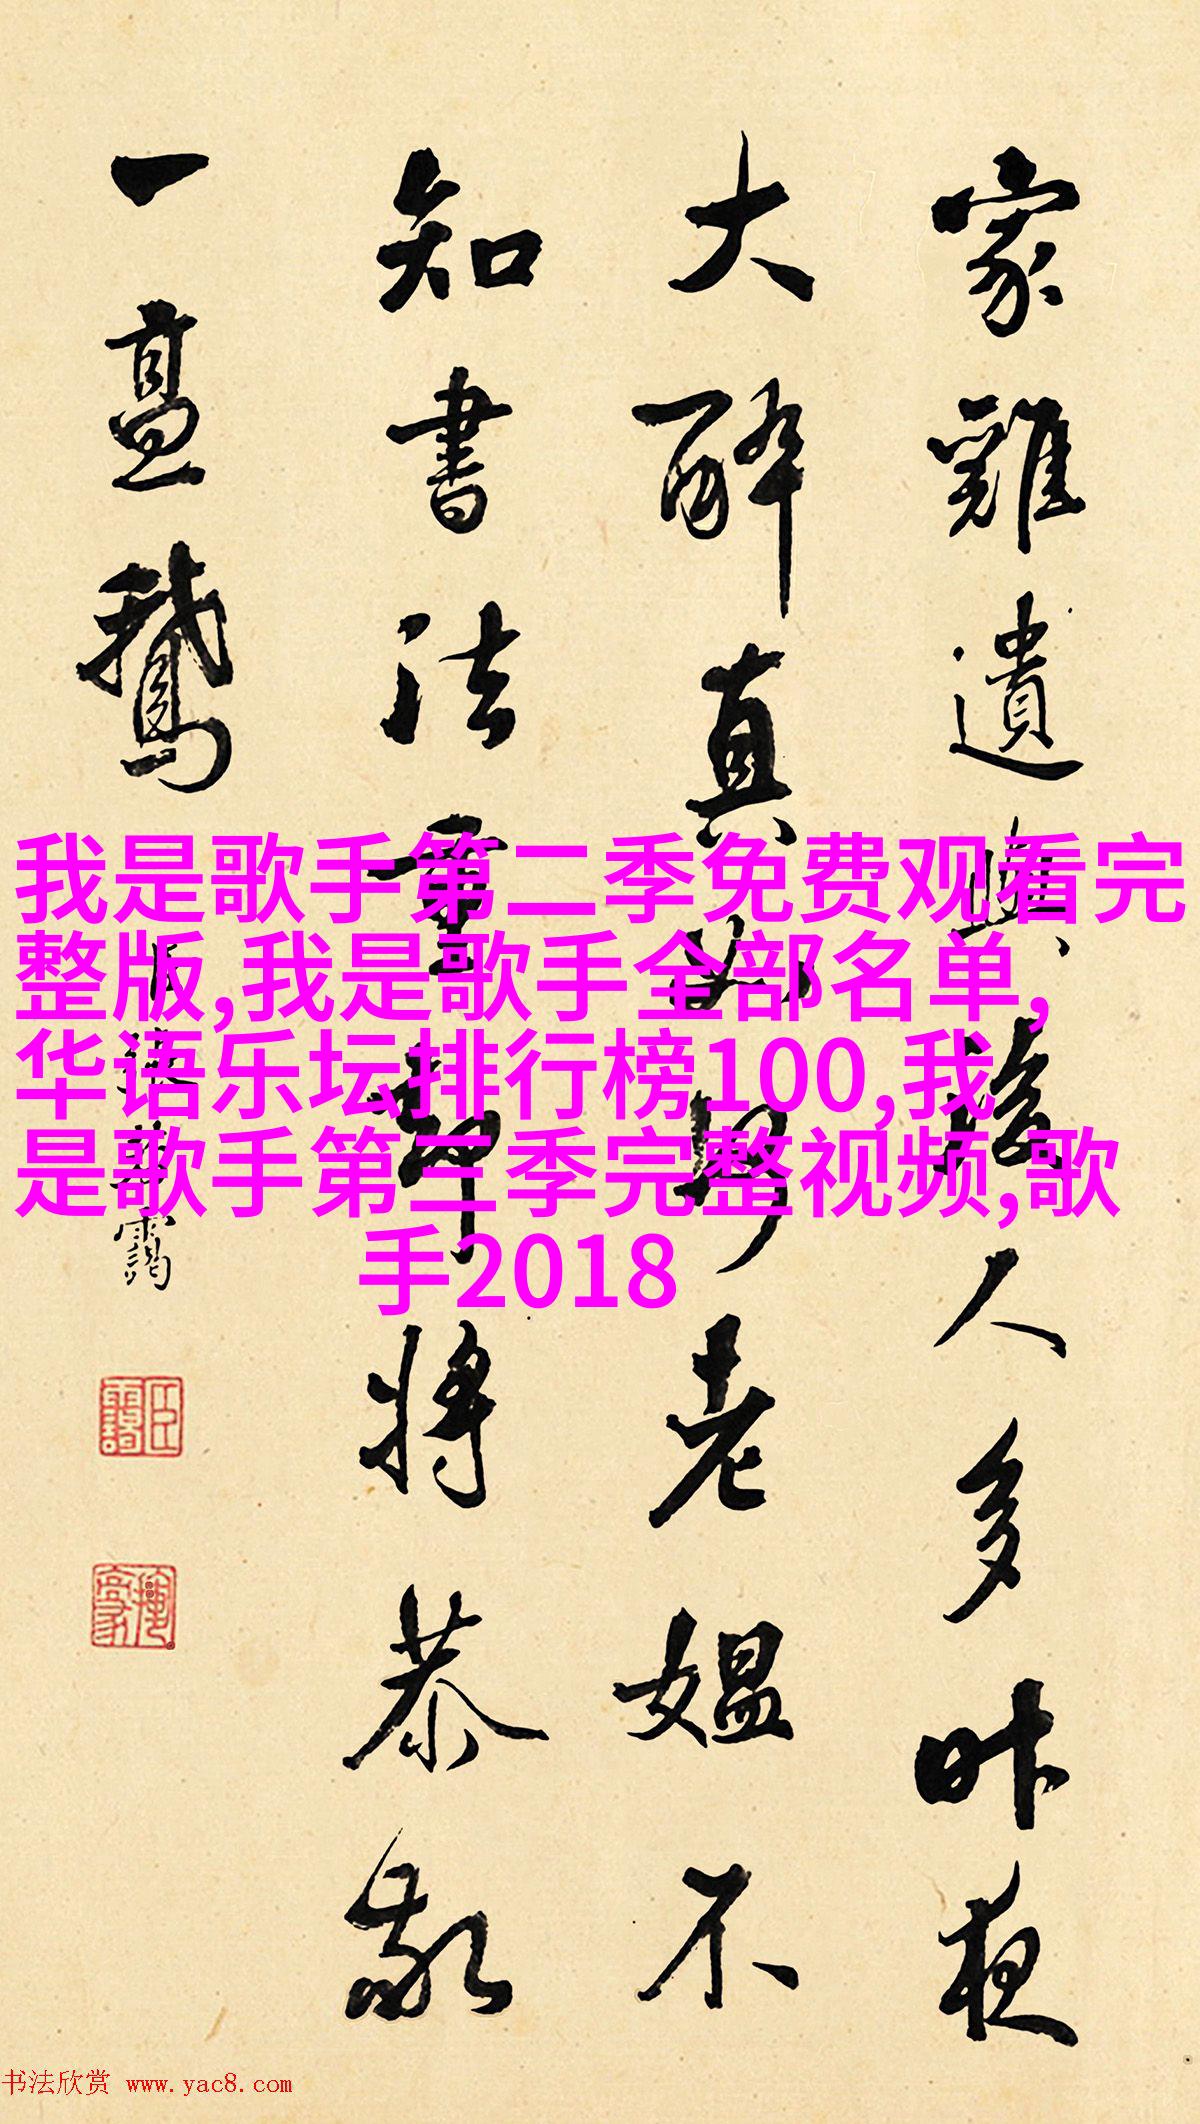 家雞遺與後人多昨夜
大醉真如何老媪不
知書法重部将恭敬
一盖鵝
臣張若靄
我是歌手第二季免费观看完
整版,我是歌手全部名单,
华语乐坛排行榜100,我
是歌手第三季完整视频,歌
手2018
书法欣赏 www.yac8.com